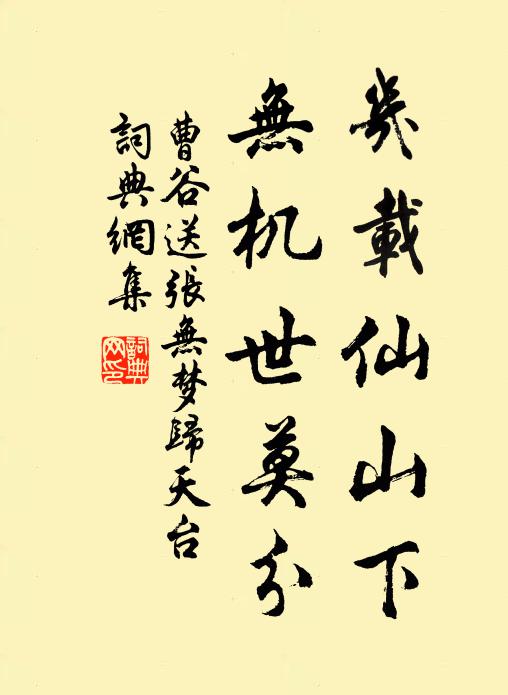 幾載仙山下
無机世莫分
曹谷送張無梦歸天台
詞典網集
詞典
网印